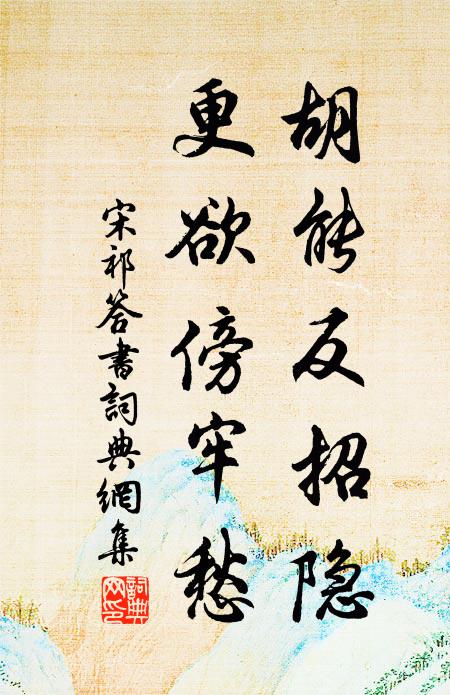 胡能反招隐
更欲傍牢愁
宋祁答书詞典網集
詞典网印